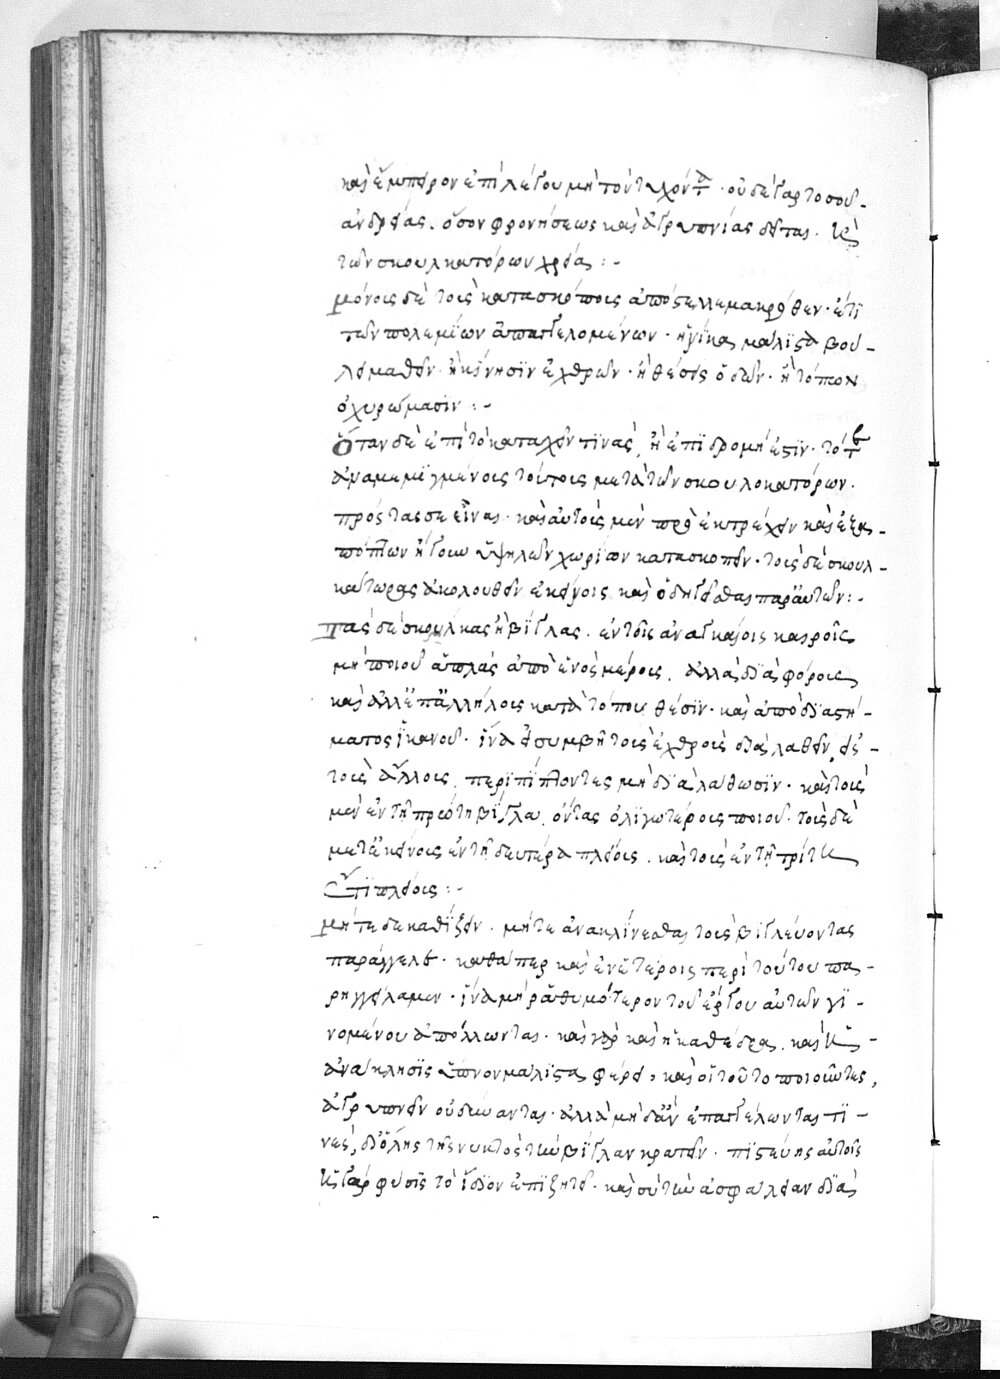 καὶ ἔμπειρον ἐπιλέγου μὴ τὸν τυχόντα · οὐδὲ γὰρ τοσοῦ-
ἀνδρείας. ὅσον φρονήσεως καὶ ἀγρυπνίας δεῖται. ἡ
τῶν σκουλκατόρων χρεία :-
μόνοις δὲ τοῖς κατασκόποις ἀπόστελλε μακρόθεν · ἐπὶ
τῶν πολεμίων ἀπαγγελομένων · ἡνίκα μάλιστα βού-
λει μαθεῖν · ἢ κίνησϊν ἐχθρῶν · ἢ θέσεις ὁδῶν · ἢ τόπων
ὀχυρώμασϊν :-
Ὅταν δὲ ἐπὶ τὸ κατασχεῖν τϊνὰς, ἢ ἐπϊδρομή ἐστϊν · τότε
ἀναμεμϊγμένοις τούτοις μετὰ τῶν σκουλοκατόρων.
πρόστασσε εἶναι · καὶ αὐτοὺς μὲν προεκτρέχειν καὶ ἐξα-
πόπτων ἤγουν ὑψηλῶν χωρίων κατασκοπεῖν · τοὺς δὲ σκουλ-
κάτωρας ἀκολουθεῖν ἐκείνοις καὶ ὁδηγεῖσθαι παρ' αὐτῶν :-
Τὰς δὲ σκούλκας ἢ βίγλας. ἐν τοῖς ἀναγκαίοις καιροῖς
μὴ ποιοῦ ἁπλὰς ἀπὸ ἑνὸς μέρους. ἀλλὰ δϊαφόρους
καὶ ἀλλεπαλλήλοις κατὰ τόπου θέσϊν · καὶ ἀπὸ δϊαστή-
ματος ἱκανοῦ · ἵνα εἰ συμβῇ τοὺς ἐχθροὺς δϊαλαθεῖν, εἰς
τοὺς ἄλλους περϊπίπτοντες μὴ δϊαλάθωσϊν · καὶ τοὺς
μὲν ἐν τῇ πρώτη βίγλα. ὄντας ὀλϊγωτέρους ποιοῦ · τοὺς δὲ
μετ' ἐκείνοις ἐν τῇ δευτέρα πλείοις. καὶ τοὺς ἐν τῇ τρίτη
ἔτϊ πλείοις :-
μήτε δὲ καθίζειν. μήτε ἀνακλίνεσθαι τοὺς βϊγλεύοντας
παράγγελε · καθάπερ καὶ ἐν ἑτέροις περὶ τούτου πα-
ρηγγείλαμεν · ἵνα μὴ ῥαθυμότερον τοῦ ἔργου αὐτῶν γϊ-
νομένου ἀπόλλωνται · καὶ γὰρ καὶ ἡ καθέδρα. καὶ ἡ
ἀνάκλησϊς ὕπνον μάλϊστα φέρει, καὶ οἱ τοῦτο ποιοῦντες,
ἀγρυπνεῖν οὐ δύναται · ἀλλὰ μηδ' ἂν ἐπαγγέλωνται τϊ-
νες, δϊ' ὅλης τῆς νυκτὸς τὴν βίγλαν κρατεῖν · πϊστεύης αὐτοῖς
ἡ γὰρ φύσϊς τὸ ἴδϊον ἐπϊζητεῖ · καὶ σὺ τὴν ἀσφάλειαν δϊὰ